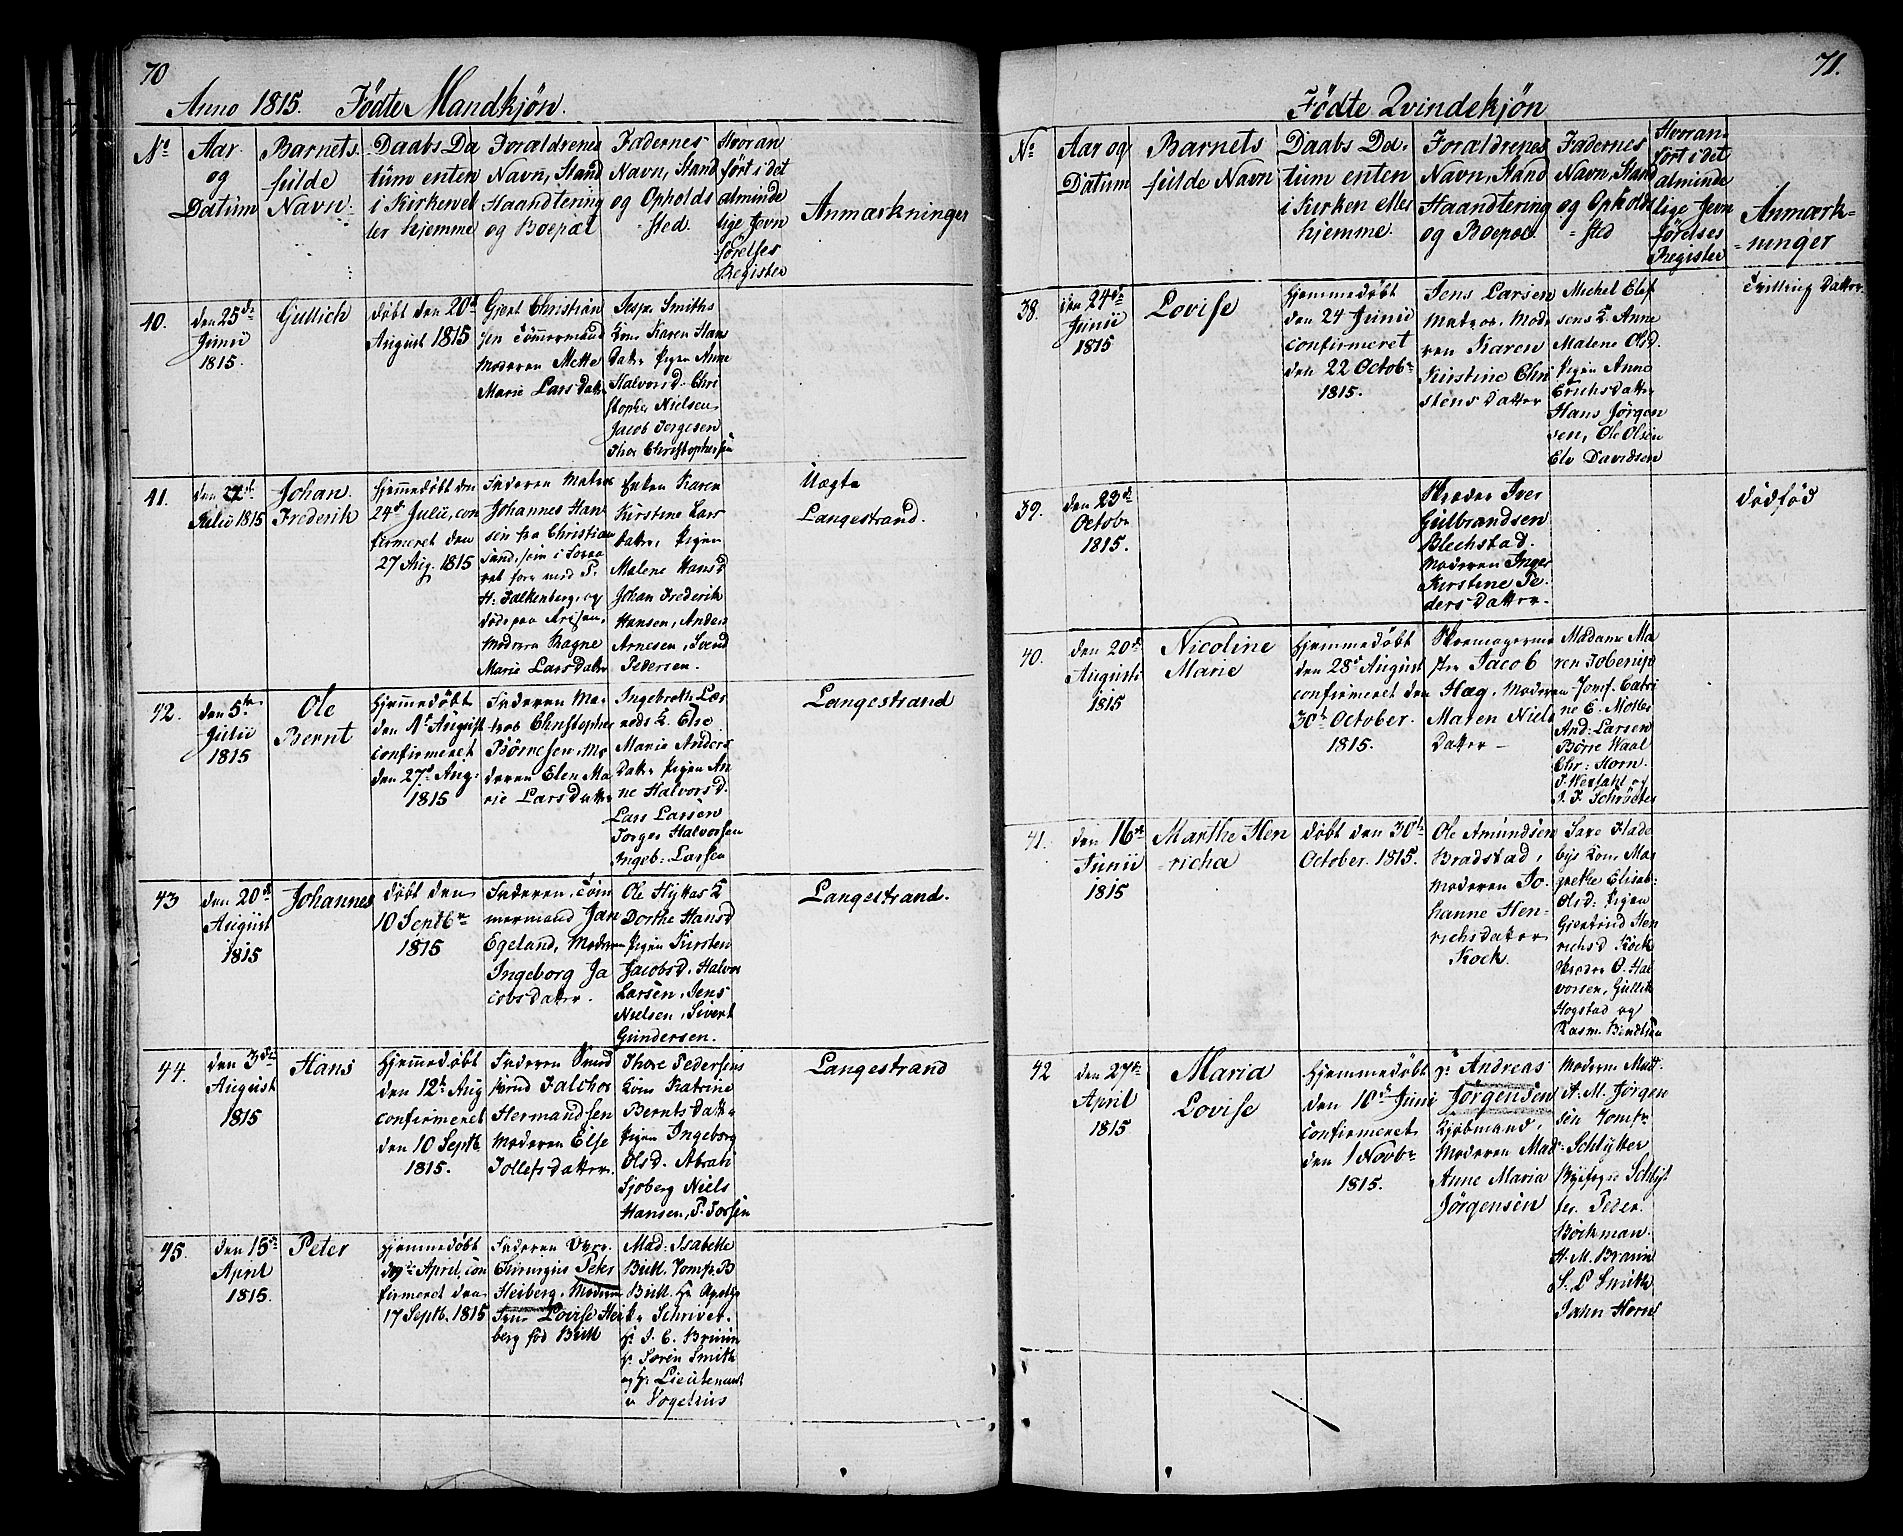 70
Anno 1815. Fødte Mandkjøn.
No
Aar
og
Datum
Barnets
fulde
Navn.
Daabs Da
tum enten
i Kirken el
ler hjemme
Forældrenes
Navn, Stand
Haandtering
og Boepæl
Fadernes
Navn, Stand
og Opholds
sted.
Hvoran
ført i det
alminde
lige Jevn
førelses
Register
Anmærkninger
40.
den 25de
Junii
1815.
Gullich
døbt den 20d
August 1815
Gjert Christian
sen Tømmermand
Moderen Mette
Marie Larsdatter
Smiths
Kone Karen Hans
Datter Pigen Anne
Halvorsd. Chri
stopher Nielsen,
Jacob Torgesen
Thor Christophersen
41.
den 22de
Julii 1815
Johan
Frederik
hjemmedøbt den
24de Julii, con
firmeret den
27 Aug. 1815
Faderen Matros
Johannes Han
sen fra Christian
sund, som i
med P.
H. Falkenberg, og
døde paa
Moderen Ragne
Marie Larsdatter
Enken Karen
Kirstine Lars
datter, Pigen
Malene Hansd
Johan Frederik
Hansen, Anders
Arnesen, Svend
Pedersen.
Uægte
Langestrand.
42.
den 5te
Julii
1815
Ole
Bernt
hjemmedøbt
den 1te August
confirmeret
den 27d Aug.
1815
Faderen Ma-
tros Christopher
Børresen, Mo
deren Elen Ma
rie Larsdatter
Ingebrett
K. Else
Marie Anders
Datter Pigen An
ne Halvorsd.
Lars Larsen
Torges Halvorsen
Ingeb: Larsen
Langestrand
43
den 20d
August
1815
Johannes
døbt den
10 Septbr
1815
Faderen, Tøm
mermand Jan
Egeland, Moderen
Ingeborg Ja
cobsdatter.
Ole K
Dorthe Hansd
Pigen Kirsten
Jacobsd. Halvor
Larsen, Jens
Nielsen, Sivert
Gundersen.
Langestrand.
44.
den 3de
August
1815
Hans
hjemmedøbt
den 12te Aug
confirmeret
den 10 Septb.
1815.
Faderen
Falchor
Hermandsen
Moderen Else
Tollefsdatter.
Thore Pedersens
Kone Katrine
Berntsdatter
Pigen Ingeborg
Olsd. Abrah
Sjoberg Niels
Hansen, P. Torsen
Langestrand
45.
den 15de
April
1815.
Peter
hjemmedøbt
d 19de April, con
firmeret den
17 Septb. 1815
Faderen
Chirurgus Peter
Heiberg, Moderen
Frue Lovise Hei
berg fød Bull
Mad: Isabelle
Bull. Jomfr. B
Bull. Hr Apothe
ker Schriver.
Hr. J. C. Bruun
Hr. Søren Smith
og Hr Lieutenant
v Vogelius
71.
Fødte Qvindekjøn
No
Aar og
Datum
Barnets
fulde Navn
Daabs Da-
tum enten
i Kirken eller
hjemme.
Forældrenes
Navn, Stand
Haandtering
og Boepæl
Fadernes
Navn, Stand
og Opholds
sted
Hvoran-
ført i det
alminde
lige Jevn
førelses
Register
Anmærk-
ninger
38.
den 24de
Junii
1815
Lovise
hjemmedøbt
den 24 Junii
confirmeret
den 22 Octobr
1815.
Jens Larsen
Matros. Mode
ren Karen
Kirstine Chri
stensdatter
Michel Elef
sens K. Anne
Malene Olsd.
Pigen Anne
Erichsdatter
Hans Jørgen
sen, Ole Olsen
Elv Davidsen
Tvilling Datter
39.
den 23d
Octobr
1815.
Skreder Iver
Gulbrandsen
Blechstad.
Moderen Inger
Kirstine Pe-
dersdatter.
dødfød
40.
den 20de
Augusti
1815
Nicoline
Marie
hjemmedøbt
den 28d August
confirmeret den
30te October.
1815.
Skomagerme
ster Jacob
Hæg. Moderen
Maren Niels
datter
Madame Ma
ren
Jomf. Catri
ne E. Møller
And: Larsen
Børre Waal
Chr: Horn
J. Westahl og
J. F. Schrøeter
41.
den 16de
Junii
1815
Marthe Hen
richa
døbt den 30te
October. 1815.
Ole Amundsen
Bradstad,
Moderen Jo-
hanne Hen-
richsdatter
Kock.
Kone Mar
grethe Elisab:
Olsd: Pigen
Gjertrud Hen
richsd Kock
Skreder O. Hal
vorsen, Gullik
Hogstad og
Rasm. Bendtsen
42
den 27de
April
1815
Maria
Lovise
hjemmedøbt
den 10de Juni
confirmeret
den 1 Novbr
1815.
Hr Andreas
Jørgensen
Kjøbmand,
Moderen Mad:
Anne Maria
Jørgensen
Moderen Mad.
A. M. Jørgen
sen Jomfr
Schlytter
Byefoged Schlyt
ter. Peder
Bockman.
H. M. Bruun
S. L Smith
John Horns